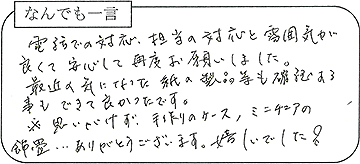 なんでも一言
電話での対応、担当の対応と雰囲気が
良くて安心して再度お願いしました。
最近の気になった紙の製品等も確認する
事もできて良かったです。
※思いがけず、手作りのケース、ミニチュアの
錦畳…ありがとうございます。嬉しいでした。